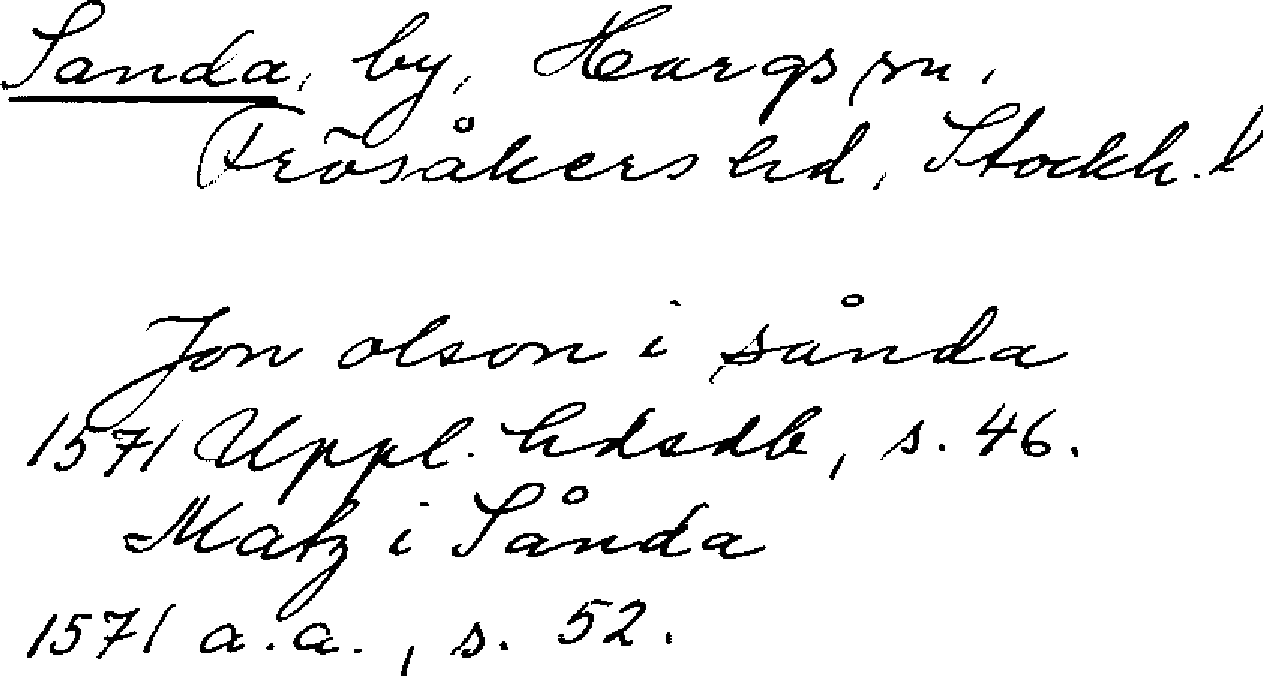 Sanda, by, Hargs sn,
Frösåkers hd, Stockh. l
Jon olson i sånda
1571 Uppl. hdsdb, s. 46.
Matz i Sånda
1571 a.a., s. 52.